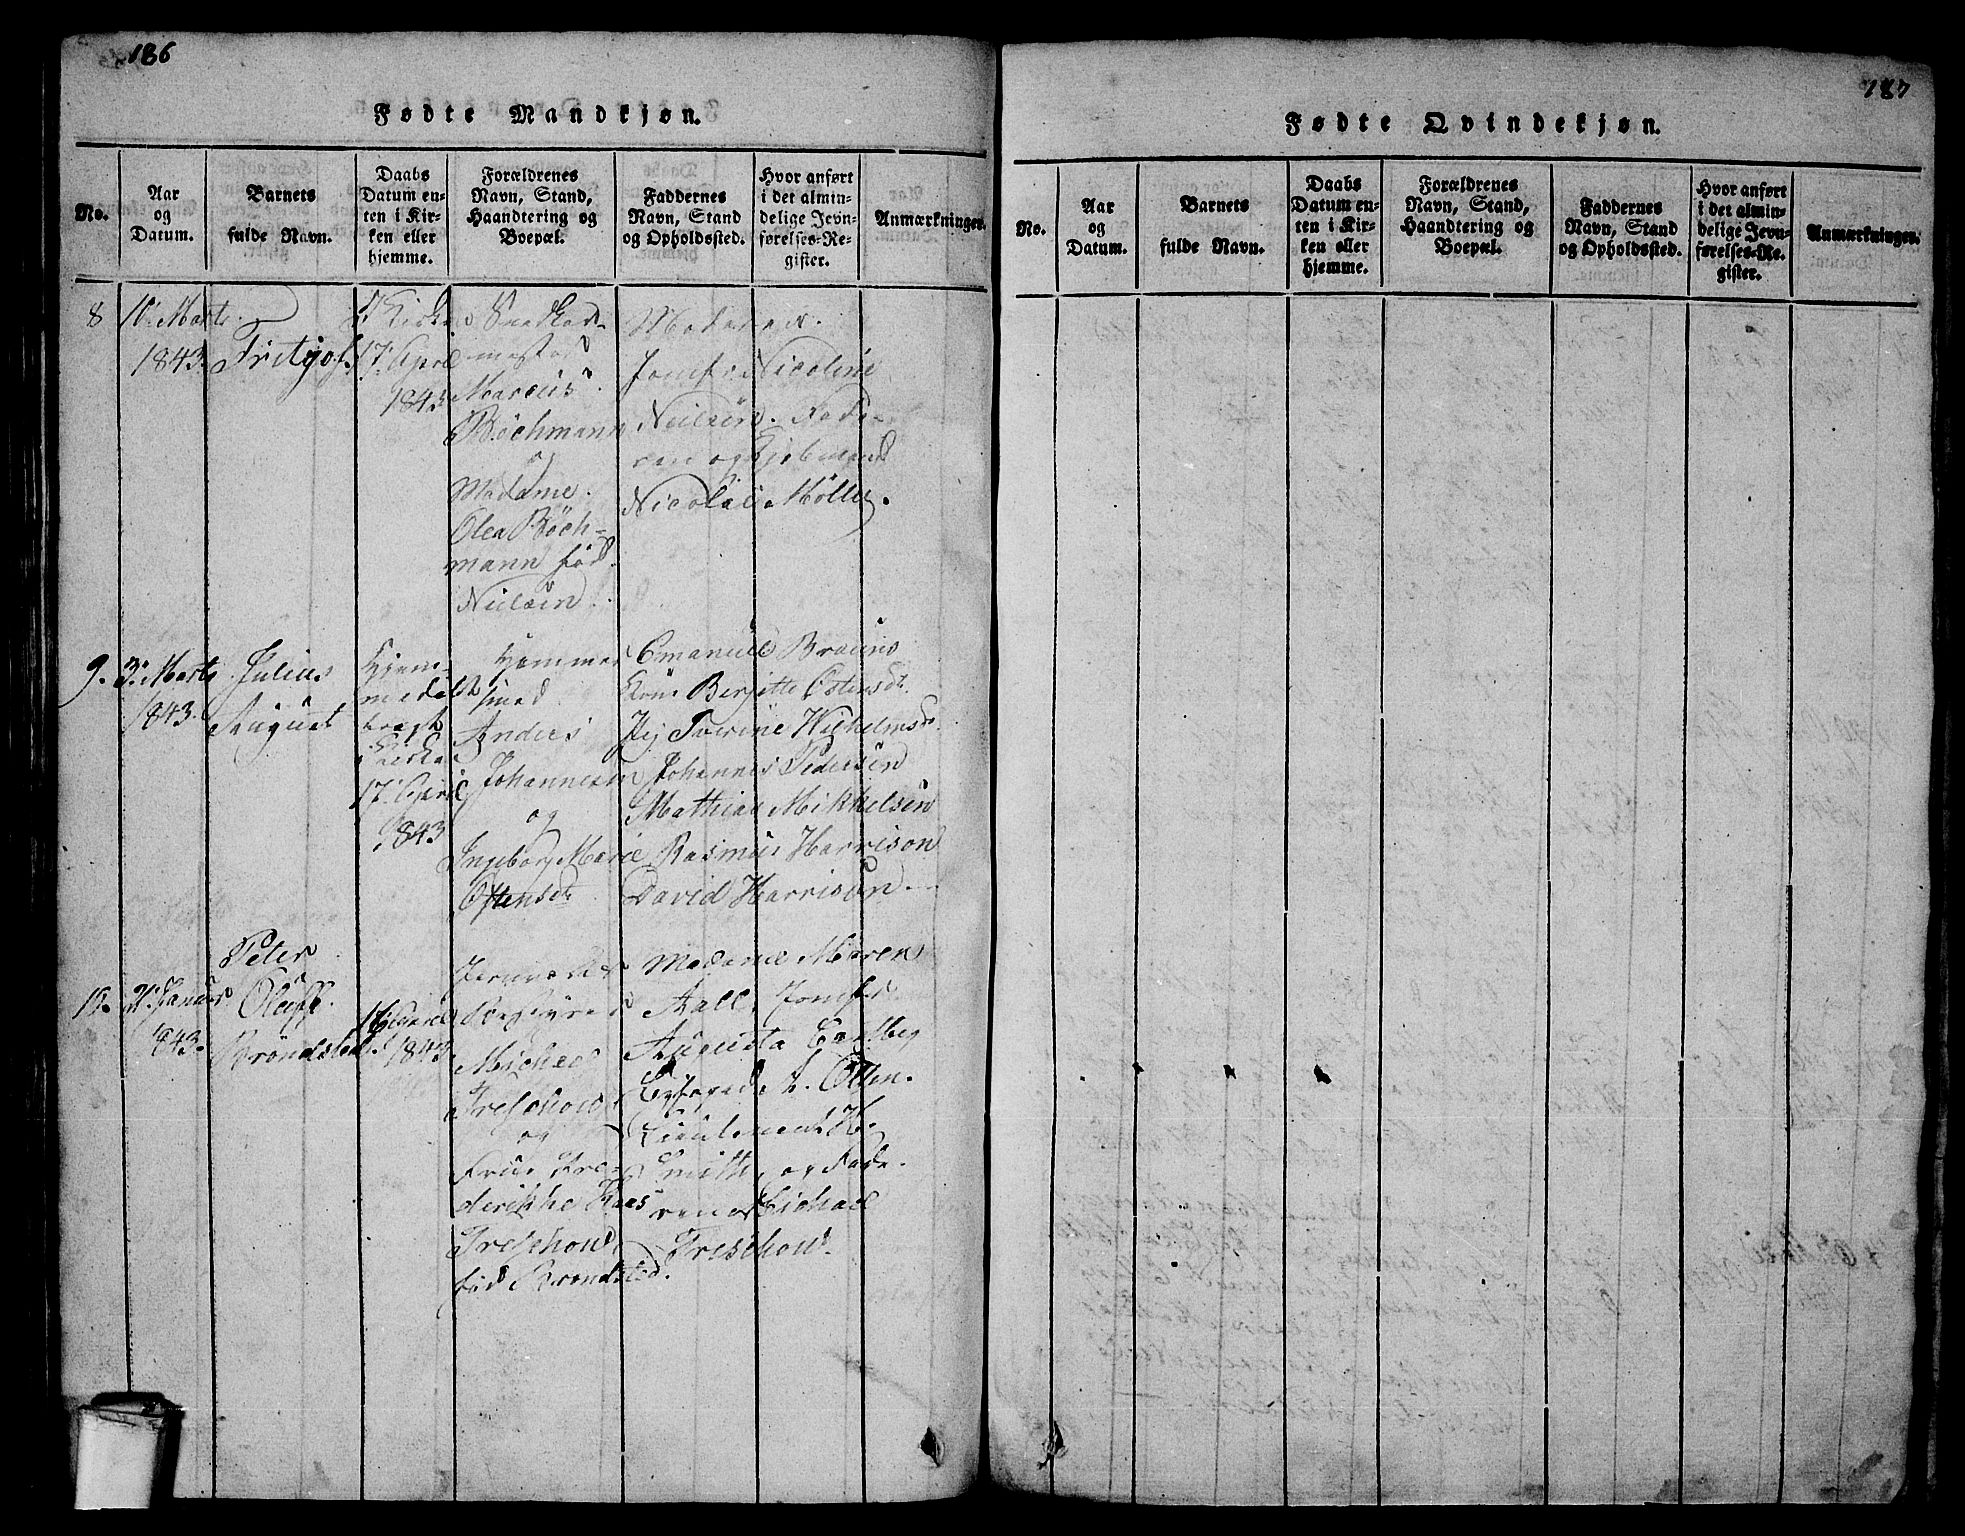 186
Fødte Mandkjøn.
No.
Aar
og
Datum.
Barnets
fulde Navn.
Daabs
Datum en-
ten i Kir-
ken eller
hjemme.
Forældrenes
Navn, Stand,
Haandtering og
Boepæl.
Faddernes
Navn, Stand
og Opholdssted.
Hvor anført
i det almin-
delige Jevn-
førelses-Re-
gister.
Anmærkninger.
8
10 Marts
1843.
Fritjof.
i Kirken
17 April
1843
Snedker-
mester
Marcus
Böchmann
og
Madame
Olea Böch-
mann fød
Nielsen.
Moderen.
Jomfr. Nicoline
Nielsen. Fade-
ren og Kjøbmand
Nicolai Møller.
9.
3. Marts
1843.
Julius
August
Hjem-
medøbt
bragt
i Kirken
17 April
1843
Hammer
smed
Anders
Johannesen
og
Ingeborg Marie
Ostensdt.
Emanuel Brauns
Kone Bergitte Ostensdt.
Pig Severine Wilhelmsdt.
Johannes Pedersen
Mathias Mikkelsen
Rasmus Harrison
David Harrison
10.
21. Januar
1843.
Peter
Oluff
Brøndsted.
16 April
1843
Jernværks
Michael
Treschow
og
Frue Fre-
derikke Kaas
Treschow
fød Brøndsted.
Madame Maren
Aall, Jomfr.
Augusta
L. Otten.
Lieutenant H.
Smith, og Fade-
ren Michael
Treschow.
187
Fødte Qvindekjøn.
No.
Aar
og
Datum.
Barnets
fulde Navn.
Daabs
Datum en-
ten i Kir-
ken eller
hjemme.
Forældrenes
Navn, Stand,
Haandtering og
Boepæl.
Faddernes
Navn, Stand
og Opholdssted.
Hvor anført
i det almin-
delige Jevn-
førelses-Re-
gister.
Anmærkninger.